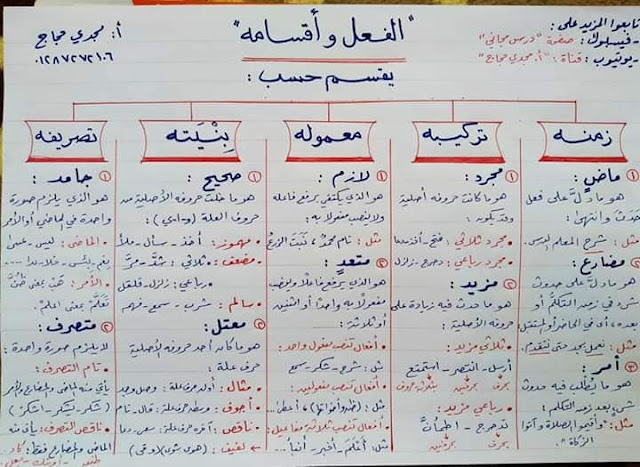 تابعوا المزيد على :
- فيسبوك : صفحة "درس مجاني"
- يوتيوب : قناة : "أ. مجدي حجاج"
"الفعل وأقسامه"
أ : مجدي حجاج
يقسم حسب :
زمنه
① ماضٍ :
هو ما دلَّ على فعل
حدث وانتهى :
مثل : شرح المعلم الدرس.
② مضارع :
هو ما دل على حدوث
شيء في زمن التكلم أو
بعده، أي في الحاضر أو المستقبل
مثل : نعمل بجد حتى نتقدم.
③ أمر :
هو ما يُطلب فيه حدوث
شيء بعد زمن التكلم :
مثل : "وأقيموا الصلاة وآتوا
الزكاة".
تركيبه
① مجرد :
هو ما كانت حروفه أصلية
وقد يكون :
• مجرد ثلاثي : فتح - أخذ
• مجرد رباعي : دحرج - زلزل
② مزيد :
هو ما حدث فيه زيادة على
حروفه الأصلية :
• ثلاثي مزيد :
أرسل - انتصر - استمتع
بحرف بحرفين بثلاثة حروف
• رباعي مزيد :
تدحرج - اطمأنَّ
بحرف بحرفين
معموله
① لازم :
هو الذي يكتفي برفع فاعله
ولا ينصب مفعولا به :
مثل : نام محمدٌ ، نَبَتَ الزرعُ
② متعدٍ :
هو الذي يرفع فاعلًا وينصب
مفعولًا به واحدًا أو اثنين
أو ثلاثة :
• أفعال تنصب مفعول واحد :
مثل : شرح - شكر - سمع
• أفعال تنصب مفعولين :
مثل : (ظن وأخواتها) ، أعطى...
• أفعال تنصب ثلاثة مفاعيل :
مثل : أعْلَمَ - أخبر - أنبأ...
بِنْيَته
① صحيح :
هو ما خلت حروفه الأصلية من
حروف العلة (و ا ي) :
• مهموز : أخذ - سأل - ملأ
• مضعف : ثلاثي : شدَّ - مَرَّ
رباعي : زلزل - قلقل
• سالم : شرب - سمع - فهم
② معتل :
هو ما كان أحد حروفه الأصلية
حرف علة :
• مثال : أوله حرف علة : وصل وجد
• أجوف : وسطه حرف علة : قال - نام
• ناقص : آخره حرف علة : سعى - دعا
• لفيف : (هوى شوى) (وقى)
تصريفه
① جامد :
هو الذي يلزم صورة
واحدة في الماضي أو الأمر
• الماضي : ليس - عسى
نِعْمَ بِئْسَ - خلا - عدا ...
• الأمر : هَبْ بمعنى ظُنَّ
تعلَّمْ بمعنى اعلمْ.
② متصرف :
لا يلزم صورة واحدة :
• تام التصرف :
يأتي منه الماضي والمضارع والأمر
(شكر - يشكر - اشكر)
• ناقص التصرف : يأتي منه
الماضي والمضارع فقط : كاد